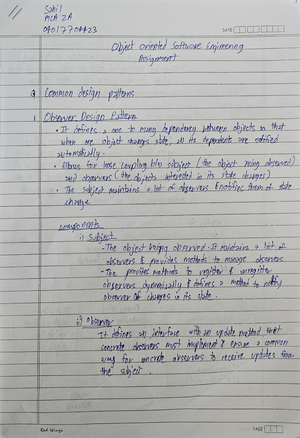 Sahil
MCA 2A
04017704423
DATE
Object oriented Software Engineering
Assignment
Q Common design patterns
1 Observer Design Pattern
• It defines a one to many dependency between objects so that
when one object changes state, all its dependents are notified
automatically.
• Allows for loose coupling b/w subject (the object being observed)
and observers (the objects interested in its state changes)
• The subject maintains a list of observers & notifies them of state
change
components
i) Subject
- The object being observed. It maintains a list of
observers & provides methods to manage observers
- The provides methods to register & unregister
observers dynamically & defines a method to notify
observer of changes in its state.
ii) Observer
It defines an interface with an update method that
concrete observers must implement & ensure a common
way for concrete observers to receive updates from
the subject.
Red Wings
PAGE